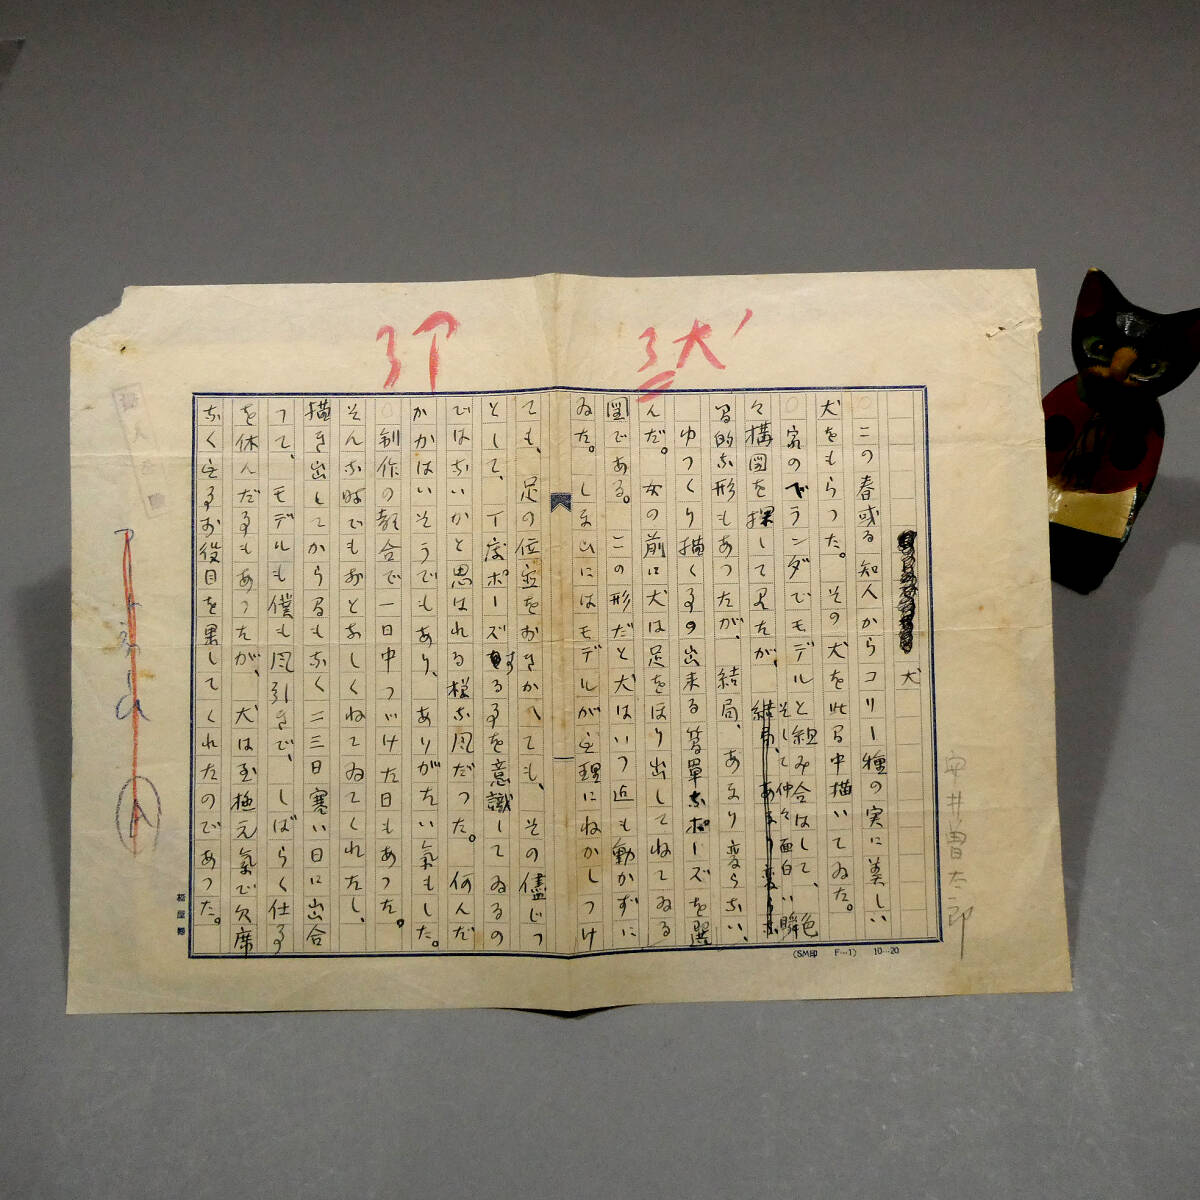 犬
安井曽太郎
犬
この春或る知人からコリー種の実に美しい
犬をもらつた。その犬を此の中描いてゐた。
家のベランダでモデルと組み合はして、色
々構図を探して見たが、そして仲々面白い瞬
間的な形もあつたが、結局、あまり変らない、
ゆつくり描くの出来る簡単なポーズを選
んだ。女の前に犬は足をほり出してねてゐる
図である。この形だと犬はいつ迄も動かずに
ゐた。しまひにはモデルが無理にねかしつけ
ても、足の位置をおきかへても、その儘じつ
として、丁度ポーズする事を意識してゐるの
ではないかと思はれる様な風だつた。何んだ
かかはいそうでもあり、ありがたい氣もした。
制作の都合で一日中つづけた日もあつた。
そんな時でもおとなしくねてゐてくれたし、
描き出してから間もなく二三日寒い日に出合
つて、モデルも僕も風引きで、しばらく仕事
を休んだ事もあつたが、犬は至極元氣で欠席
なく無事お役目を果してくれたのであつた。
(SM印 F-1) 10-20